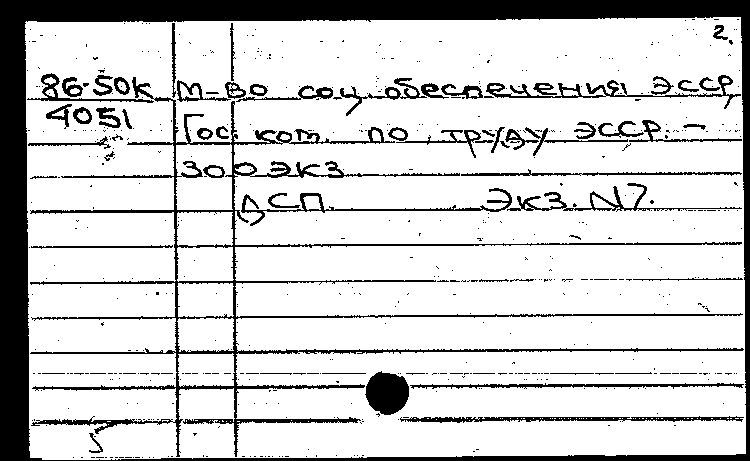 2.
86-50к М-во соц. обеспечения ЭССР,
4051 Гос. ком. по труду ЭССР. –
300 экз
ДСП. Экз. N7.
5